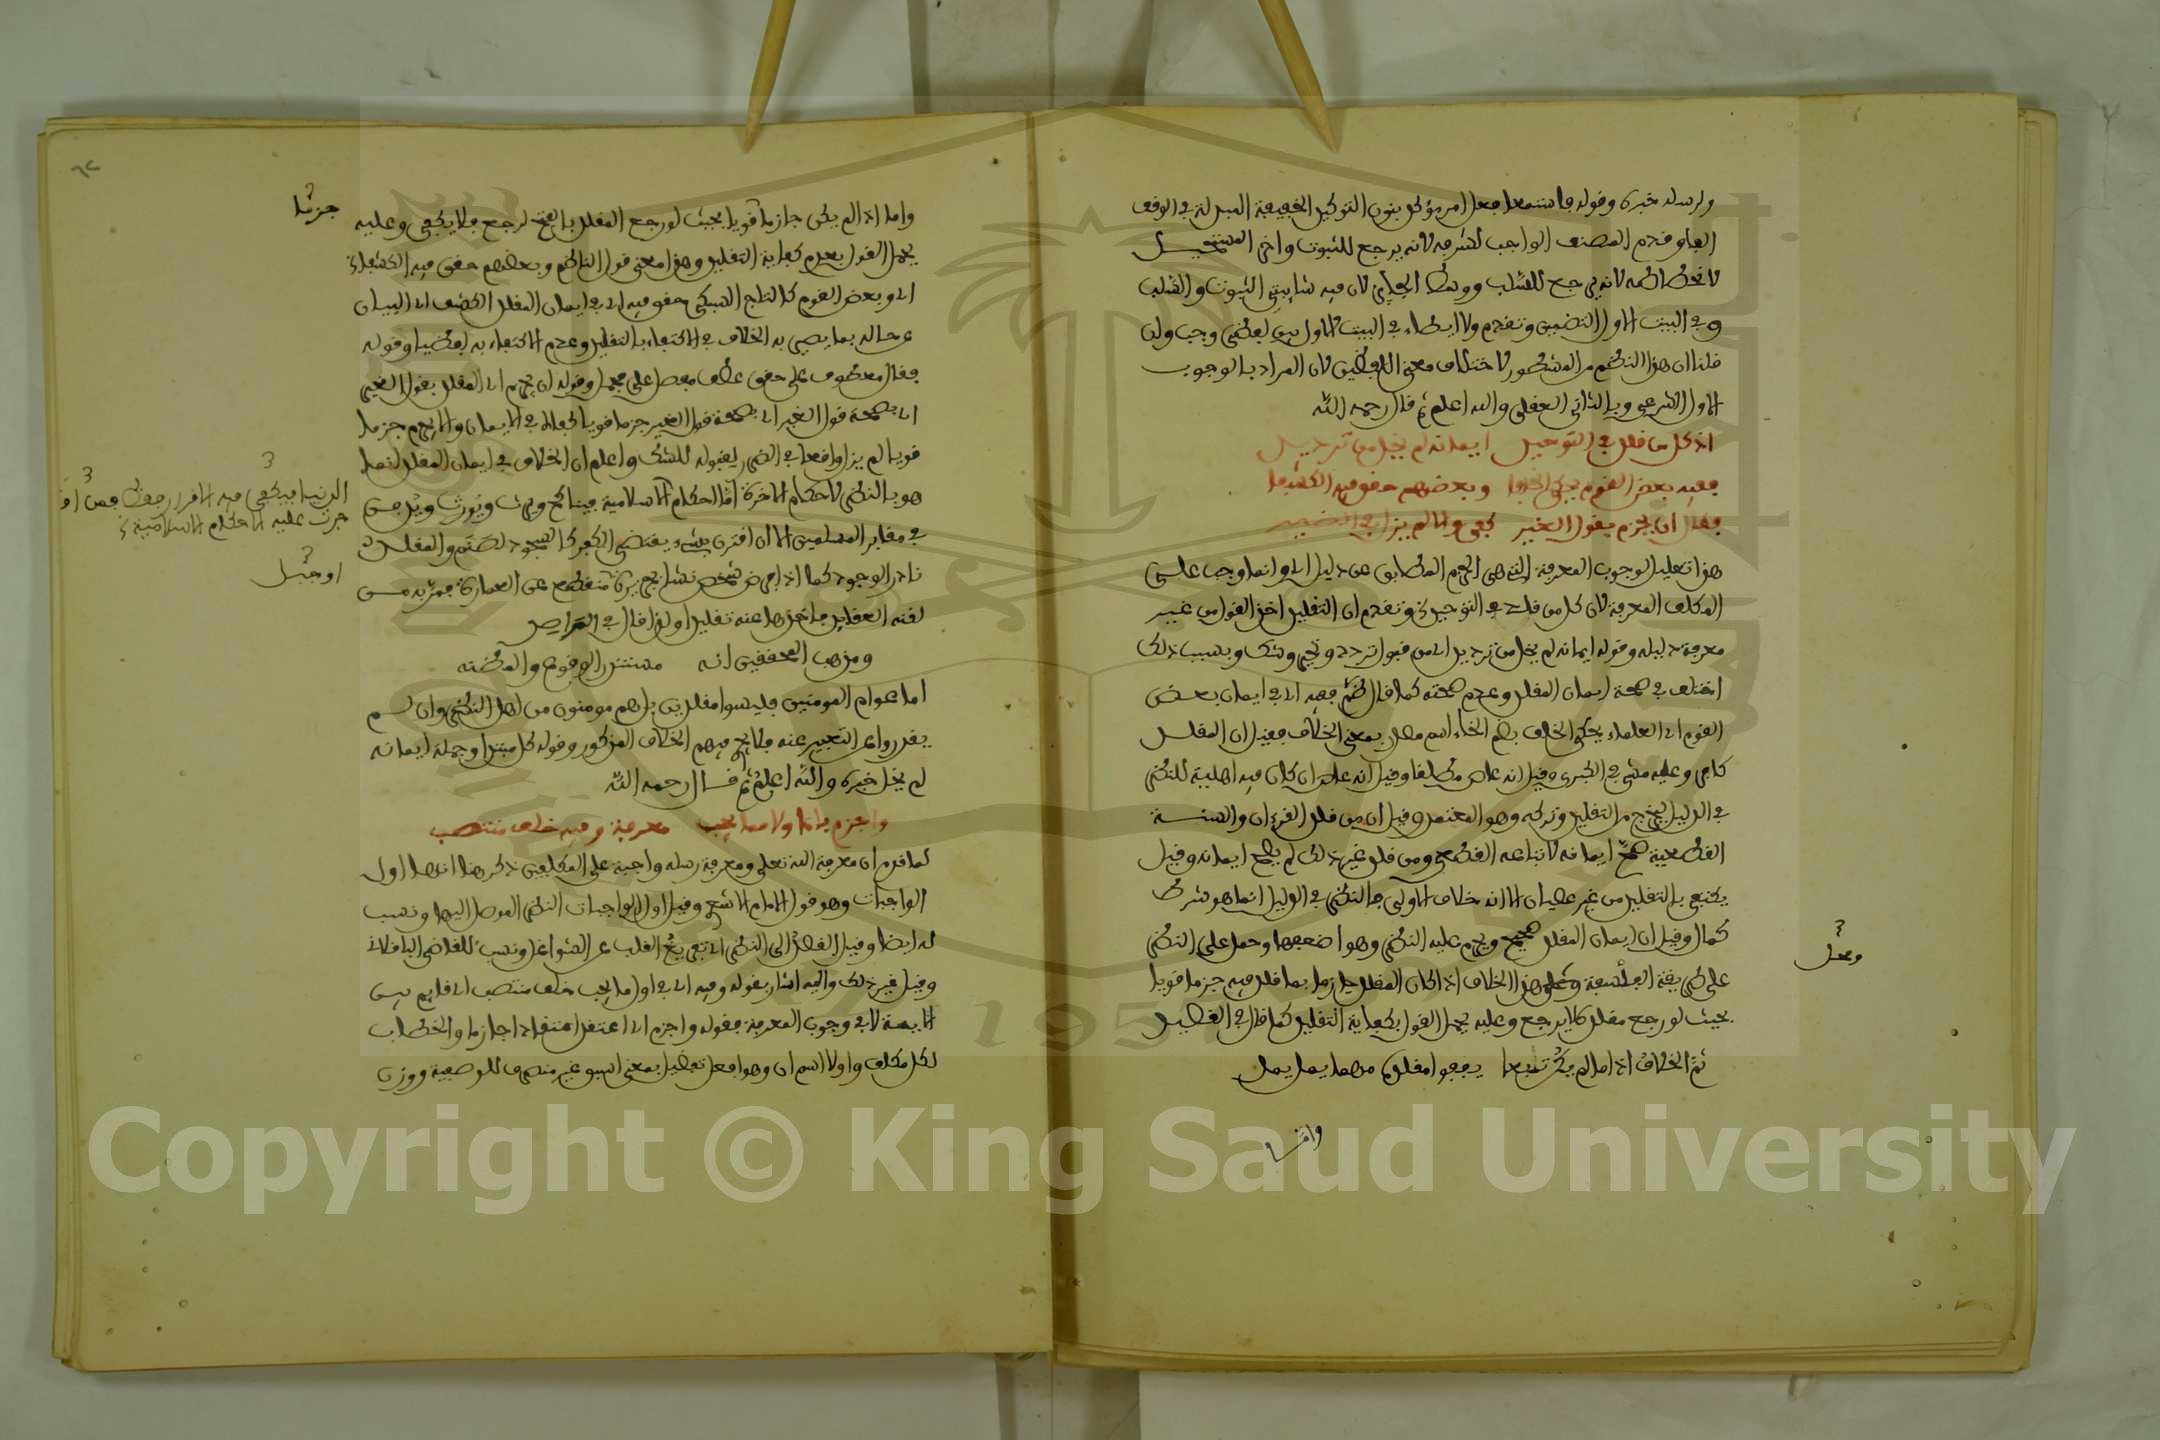 ولرسله خبره وقوله فاستمعا فعل امر مؤكد بنون التوكيد الخفيفة المبدلة في الوقف
الفا وقدم المصنف الواجب لشرفه لانه يرجع للثبوت واخر المستحيل
لانحطاطه لانه يرجع للسلب ووسط الجايز لان فيه شايبتي الثبوت والسلب
وفي البيت الاول التضمين وتقدم ولا ايطاء في البيت الاول بين لفظي وجب وان
قلنا ان هذا النظم من المشطور لاختلاف معنى اللفظين لان المراد بالوجوب
الاول الشرعي وبالثاني العقلي والله اعلم ثم قال رحمه الله
اذ كل من قلد في التوحيد ايمانه لم يخل من ترديد
ففيه بعض القوم يحكي الخلفا وبعضهم حقق فيه الكشفا
فقال ان يجزم بقول الغير كفى والا لم يزل في الضير
هذا تعليل لوجوب المعرفة التي هي الجزم المطابق عن دليل اي وانما وجب على
المكلف المعرفة لان كل من قلد في التوحيد وتقدم ان التقليد اخذ القول من غير
معرفة دليله وقوله ايمانه لم يخل من ترديد اي من قبول تردد وتحير وشك وبسبب ذلك
اختلف في صحة ايمان المقلد وعدم صحته كما قال الناظم ففيه اي في ايمان بعض
القوم اي العلماء يحكي الخلف بضم الخاء اسم مصدر بمعنى الخلاف فقيل ان المقلد
كافر وعليه مشى في الكبرى وقيل انه عاص مطلقا وقيل انه عاص ان كان فيه اهلية للنظر
في الدليل ليخرج من التقليد وتركه وهو المعتمد وقيل ان من قلد القرءان والسنة
القطعية صح ايمانه لاتباعه القطعي ومن قلد غير ذلك لم يصح ايمانه وقيل
يكتفى بالتقليد من غير عصيان الا انه خلاف الاولى فالنظر في الدليل انما هو شرط
كمال وقيل ان ايمان المقلد صحيح ويحرم عليه النظر وهو اضعفها وحمل على النظر
على طريقة الفلسفة ومحل هذا الخلاف اذا كان المقلد جازما بما قلد فيه جزما قويا
بحيث لو رجع مقلده لا يرجع وعليه يحمل القول بكفاية التقليد كما قال في
ثم الخلاف اذا ما لم يكن تبعا يقفو مقلده مهما يمل يمل
واما
ومحل
واما اذا لم يكن جازما قويا بحيث لو رجع المقلد بالفتح لرجع فلا يكفي وعليه
يحمل القول بعدم كفاية التقليد وهذا معنى قول الناظم وبعضهم حقق فيه الكشفا
اي وبعض القوم كالتاج السبكي حقق فيه اي في ايمان المقلد الكشف اي البيان
عن حاله بما يصير به الخلاف في الاكتفاء بالتقليد وعدم الاكتفاء به لفظيا وقوله
فقال معطوف على حقق عطف مفصل على مجمل وقوله ان يجزم اي المقلد بقول الغير
اي بصحة قول الغير اي بصحة قول الغير جزما قويا كفاه في الايمان والا يجزم جزما
قويا لم يزل واقعا في الضير لقبوله للشك واعلم ان الخلاف في ايمان المقلد انما
هو بالنظر لاحكام الاخرة اما الاحكام الاسلامية فيناكح ويرث ويورث ويدفن
في مقابر المسلمين الا ان اقترن بشيء يقتضي الكفر كالسجود لصنم والمقلد
نادر الوجود كما اذا فرض شخص نشا بجزيرة منقطع عن العمارة فمر به من
لقنه العقايد فاخذها عنه تقليدا ولذا قال في المراصد
ومذهب المحققين انه مستندر الوقوع والمظنه
اما عوام المومنين فليسوا مقلدين بل هم مومنون من اهل النظر وان لم
يقدروا على التعبير عنه فلا يجري فيهم الخلاف المذكور وقوله كل مبتدا وجملة ايمانه
لم يخل خبره والله اعلم ثم قال رحمه الله
واجزم بان اولا مما يجب معرفة وفيه خلف منتصب
لما قدم ان معرفة الله تعلى ومعرفة رسله واجبة على المكلفين ذكر هنا انها اول
الواجبات وهو قول الامام الاشعري وقيل اول الواجبات النظر الموصل اليها ونسب
له ايضا وقيل القصد الى النظر اي تفريغ القلب عن الشواغل ونسب للقاضي الباقلاني
وقيل غير ذلك واليه اشار بقوله وفيه اي في اول ما يجب خلف منتصب اي قايم بين
الايمة لا في وجوب المعرفة فقوله واجزم اي اعتقد اعتقادا جازما والخطاب
لكل مكلف واولا اسم ان وهو افعل تفضيل بمعنى اسبق غير منصرف للوصفية ووزن
جزما
الدنيا فيكفي فيه الاقرار فقط فمن اقر
جرت عليه الاحكام الاسلامية
او جبل
٦٢
1957
Copyright © King Saud University